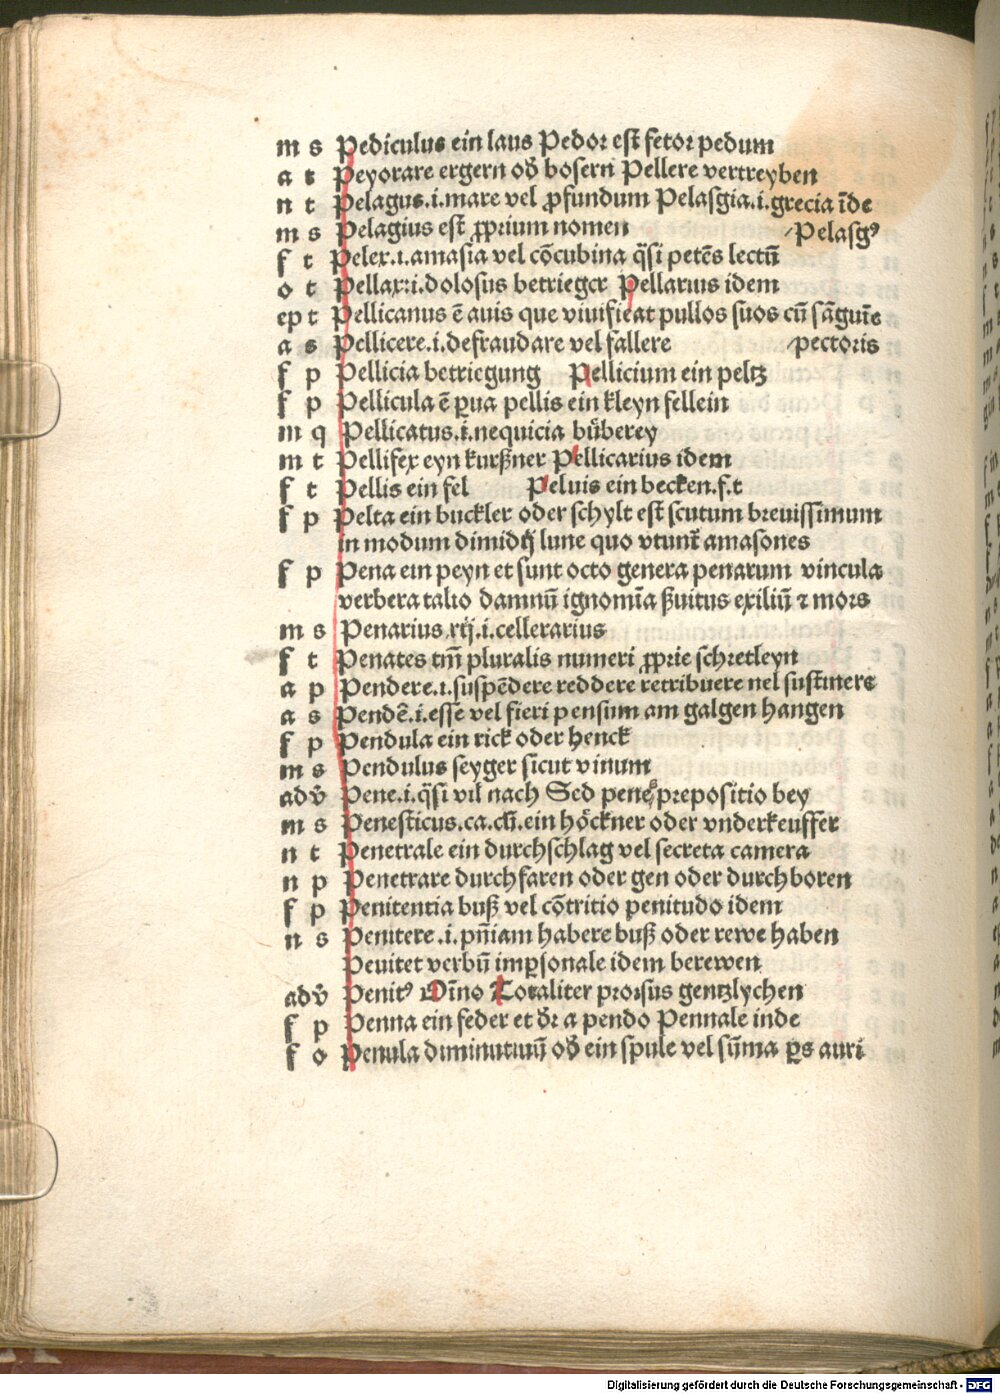 m s Pediculus ein laus Pedor est fetor pedum
a t Peyorare ergern oď bosern Pellere vertreyben
n t Pelagus.i.mare vel ꝓfundum Pelasgia.i.grecia īde
m s Pelagius est ꝓprium nomen Pelasgꝰ
f t Pelex.i.amasia vel cōcubina q̈si petēs lectū
o t Pellax.i.dolosus betrieger Pellarius idem
ep t Pellicanus ē auis que viuificat pullos suos cū sāguīe
a s Pellicere.i.defraudare vel fallere pectoris
f p Pellicia betriegung Pellicium ein peltz
f p Pellicula ē ꝑua pellis ein kleyn fellein
m q Pellicatus.i.nequicia bůberey
m t Pellifex eyn kurßner Pellicarius idem
f t Pellis ein fel Peluis ein becken.f.t
f p Pelta ein buckler oder schylt est scutum breuissimum
in modum dimidij lune quo vtunt̄ amasones
f p Pena ein peyn et sunt octo genera penarum vincula
verbera talio damnū ignomīa ßuitus exiliū ⁊ mors
m s Penarius.rij.i.cellerarius
f t Penates tm̄ pluralis numeri ꝓprie schretleyn
a p Pendere.i.suspēdere reddere retribuere nel sustinere
a s Pendē.i.esse vel fieri pensum am galgen hangen
f p Pendula ein rick oder henck
m s Pendulus seyger sicut vinum
adv̄ Pene.i.q̈si vil nach Sed pene prepositio bey
m s Penesticus.ca.cū.ein höckner oder vnderkeuffer
n t Penetrale ein durchschlag vel secreta camera
n p Penetrare durchfaren oder gen oder durchboren
f p Penitentia buß vel cōtritio penitudo idem
n s Penitere.i.pn̄iam habere buß oder rewe haben
Peuitet verbū imꝑsonale idem berewen
adv̄ Penitꝰ Oīno Totaliter prorsus gentzlychen
f p Penna ein feder et dr̄ a pendo Pennale inde
f o Penula diminutiuū oď ein spule vel sūma ꝑs auri
Digitalisierung gefördert durch die Deutsche Forschungsgemeinschaft - DFG